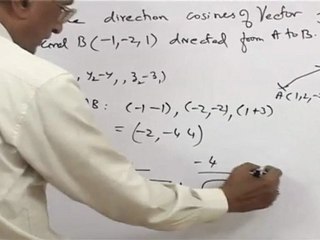 direction cosines of Vector
and B(-1,-2,1) directed from A to B.
, y₂-y, , z₂-z,)
A(1,2,-
AB: (-1-1), (-2,-2), (1+3)
= (-2,-4 4)
-4